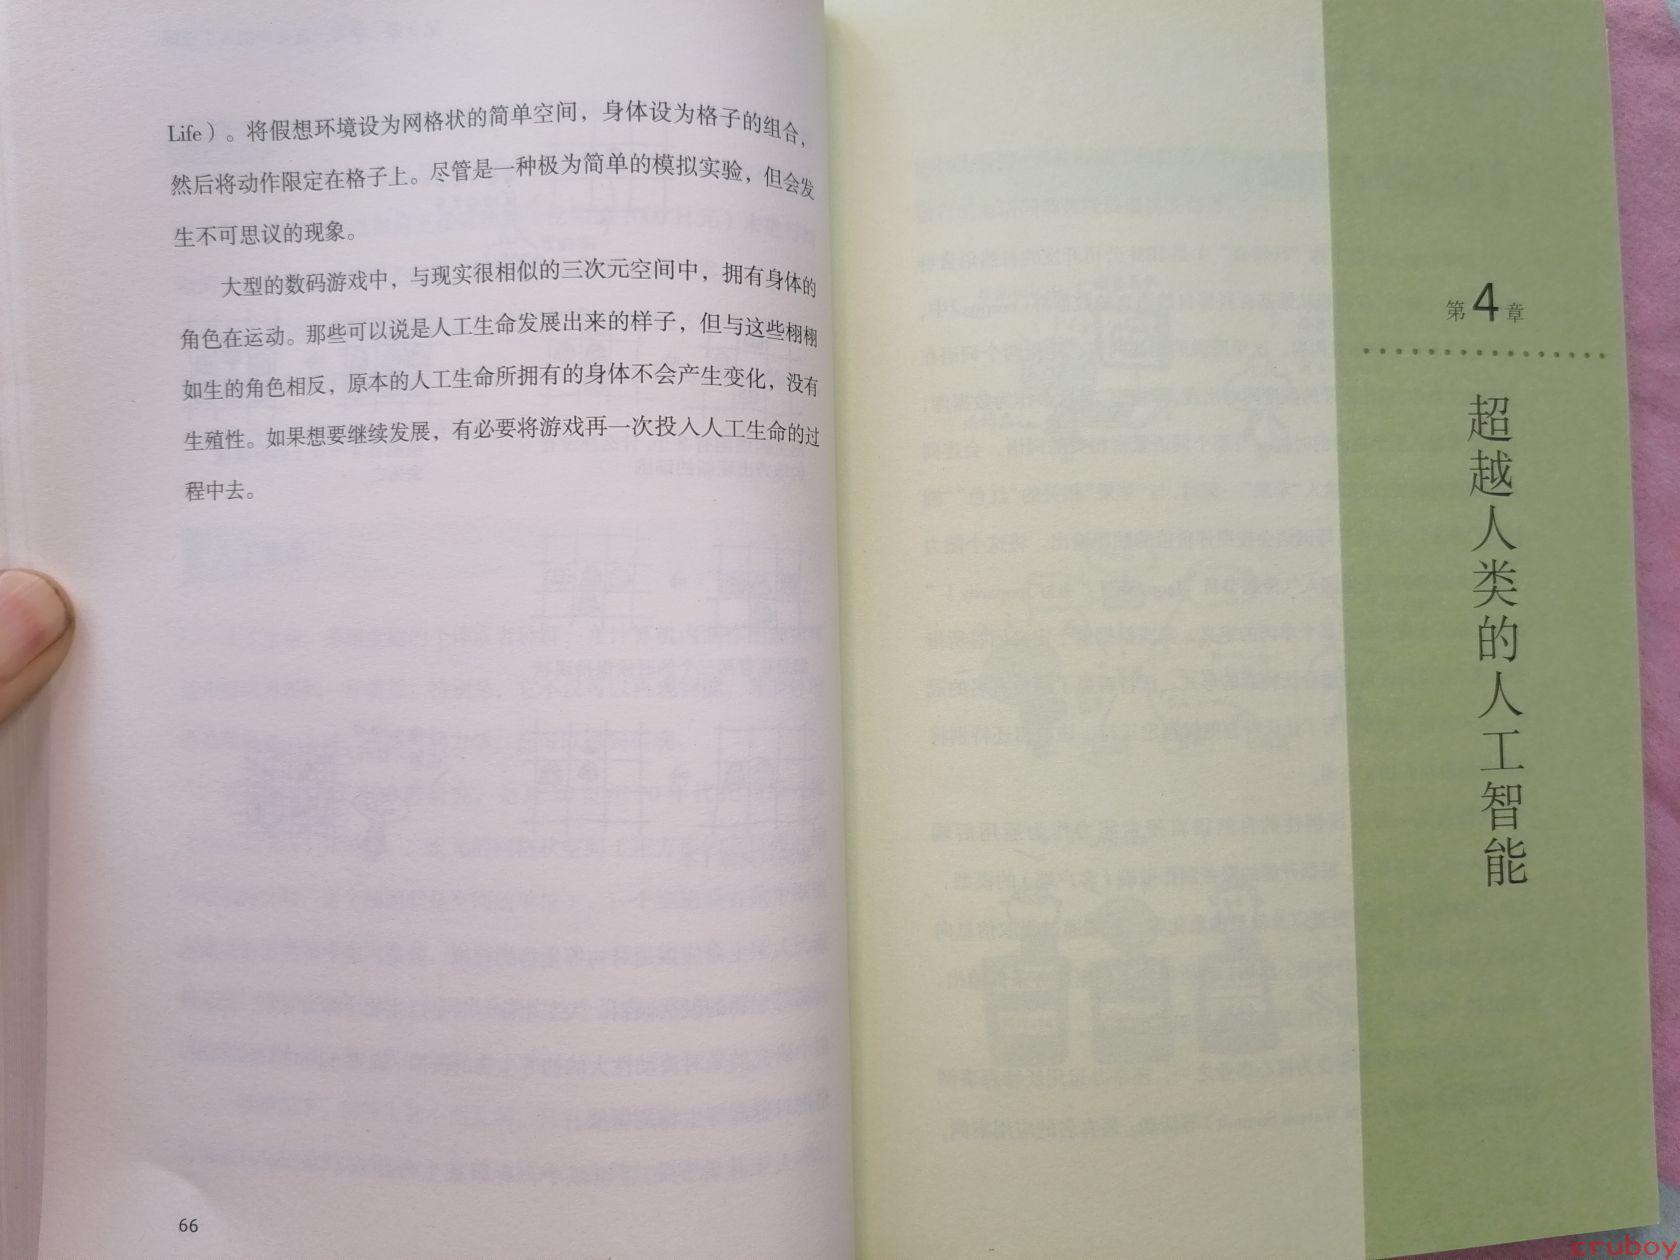 Life）。将假想环境设为网格状的简单空间，身体设为格子的组合，
然后将动作限定在格子上。尽管是一种极为简单的模拟实验，但会发
生不可思议的现象。
大型的数码游戏中，与现实很相似的三次元空间中，拥有身体的
角色在运动。那些可以说是人工生命发展出来的样子，但与这些栩栩
如生的角色相反，原本的人工生命所拥有的身体不会产生变化，没有
生殖性。如果想要继续发展，有必要将游戏再一次投入人工生命的过
程中去。
66
第4章
超越人类的人工智能
cruboy